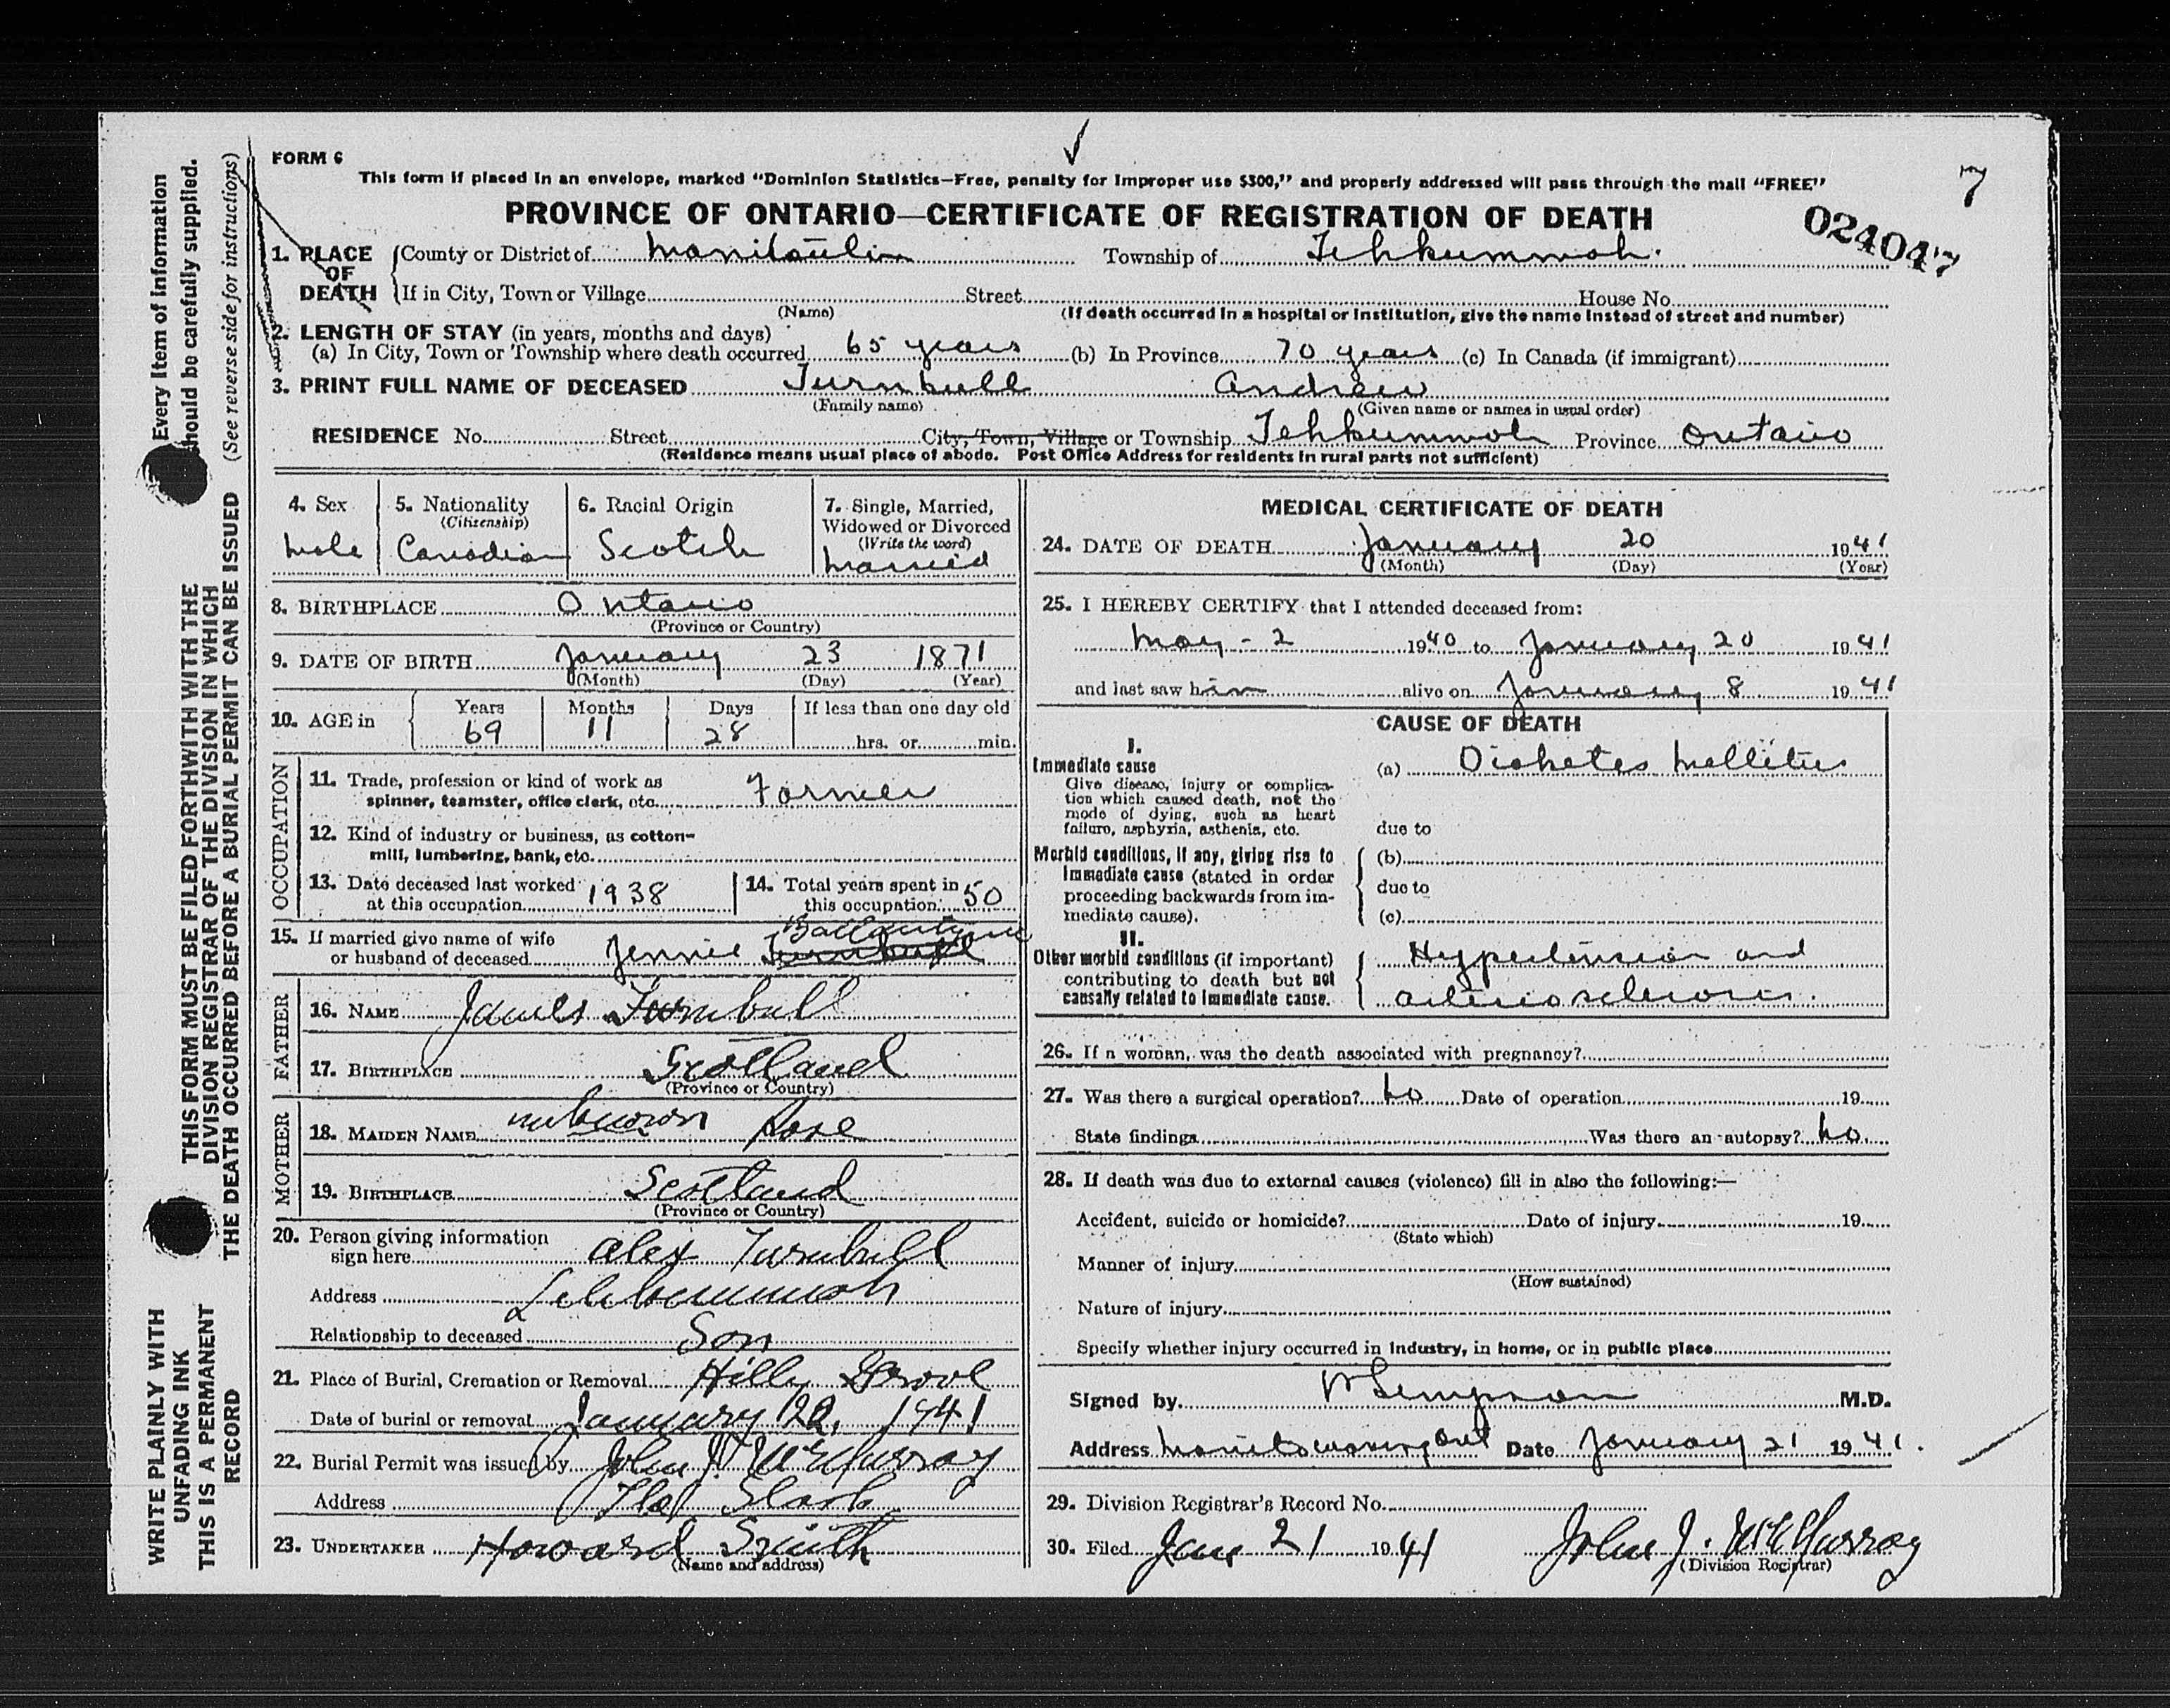 7
FORM 6
This form if placed in an envelope, marked "Dominion Statistics—Free, penalty for improper use $300," and properly addressed will pass through the mail "FREE"
PROVINCE OF ONTARIO—CERTIFICATE OF REGISTRATION OF DEATH
024047
1. PLACE OF DEATH County or District of Manitoulin Township of Tehkummah.
If in City, Town or Village Street House No.
(Name) (If death occurred in a hospital or institution, give the name instead of street and number)
2. LENGTH OF STAY (in years, months and days)
(a) In City, Town or Township where death occurred 65 years (b) In Province 70 years (c) In Canada (if immigrant)
3. PRINT FULL NAME OF DECEASED Turnbull Andrew
(Family name) (Given name or names in usual order)
RESIDENCE No. Street City, Town, Village or Township Tehkummah Province Ontario
(Residence means usual place of abode. Post Office Address for residents in rural parts not sufficient)
4. Sex
Male
5. Nationality
(Citizenship)
Canadian
6. Racial Origin
Scotch
7. Single, Married,
Widowed or Divorced
(Write the word)
Married
8. BIRTHPLACE Ontario
(Province or Country)
9. DATE OF BIRTH January 23 1871
(Month) (Day) (Year)
10. AGE in Years Months Days If less than one day old
69 11 28 hrs. or min.
OCCUPATION
11. Trade, profession or kind of work as
spinner, teamster, office clerk, etc. Farmer
12. Kind of industry or business, as cotton-
mill, lumbering, bank, etc.
13. Date deceased last worked
at this occupation 1938
14. Total years spent in
this occupation 50
15. If married give name of wife
or husband of deceased Jennie Turnbull Ballantyne
FATHER
16. NAME James Turnbull
17. BIRTHPLACE Scotland
(Province or Country)
MOTHER
18. MAIDEN NAME unknown Rose
19. BIRTHPLACE Scotland
(Province or Country)
20. Person giving information
sign here Alex Turnbull
Address Tehkummah
Relationship to deceased Son
21. Place of Burial, Cremation or Removal Hilly Grove
Date of burial or removal January 22, 1941
22. Burial Permit was issued by John J. McMurray
Address
23. UNDERTAKER Howard Smith
(Name and address)
MEDICAL CERTIFICATE OF DEATH
24. DATE OF DEATH January 20 1941
(Month) (Day) (Year)
25. I HEREBY CERTIFY that I attended deceased from:
May - 2 1940 to January 20 1941
and last saw him alive on January 8 1941
CAUSE OF DEATH
I.
Immediate cause
Give disease, injury or complica-
tion which caused death, not the
mode of dying, such as heart
failure, asphyxia, asthenia, etc.
(a) Diabetes Mellitus
due to
Morbid conditions, if any, giving rise to
immediate cause (stated in order
proceeding backwards from im-
mediate cause).
(b)
due to
(c)
II.
Other morbid conditions (if important)
contributing to death but not
causally related to immediate cause.
Hypertension and
arteriosclerosis.
26. If a woman, was the death associated with pregnancy?
27. Was there a surgical operation? No Date of operation 19
State findings Was there an autopsy? No.
28. If death was due to external causes (violence) fill in also the following:—
Accident, suicide or homicide? Date of injury 19
(State which)
Manner of injury
(How sustained)
Nature of injury
Specify whether injury occurred in industry, in home, or in public place
Signed by Simpson M.D.
Address Manitowaning Ont Date January 21 1941.
29. Division Registrar's Record No.
30. Filed Jan 21 1941 John J. McMurray
(Division Registrar)
Every item of information
should be carefully supplied.
(See reverse side for instructions)
THIS FORM MUST BE FILED FORTHWITH WITH THE
DIVISION REGISTRAR OF THE DIVISION IN WHICH
THE DEATH OCCURRED BEFORE A BURIAL PERMIT CAN BE ISSUED
WRITE PLAINLY WITH
UNFADING INK
THIS IS A PERMANENT
RECORD